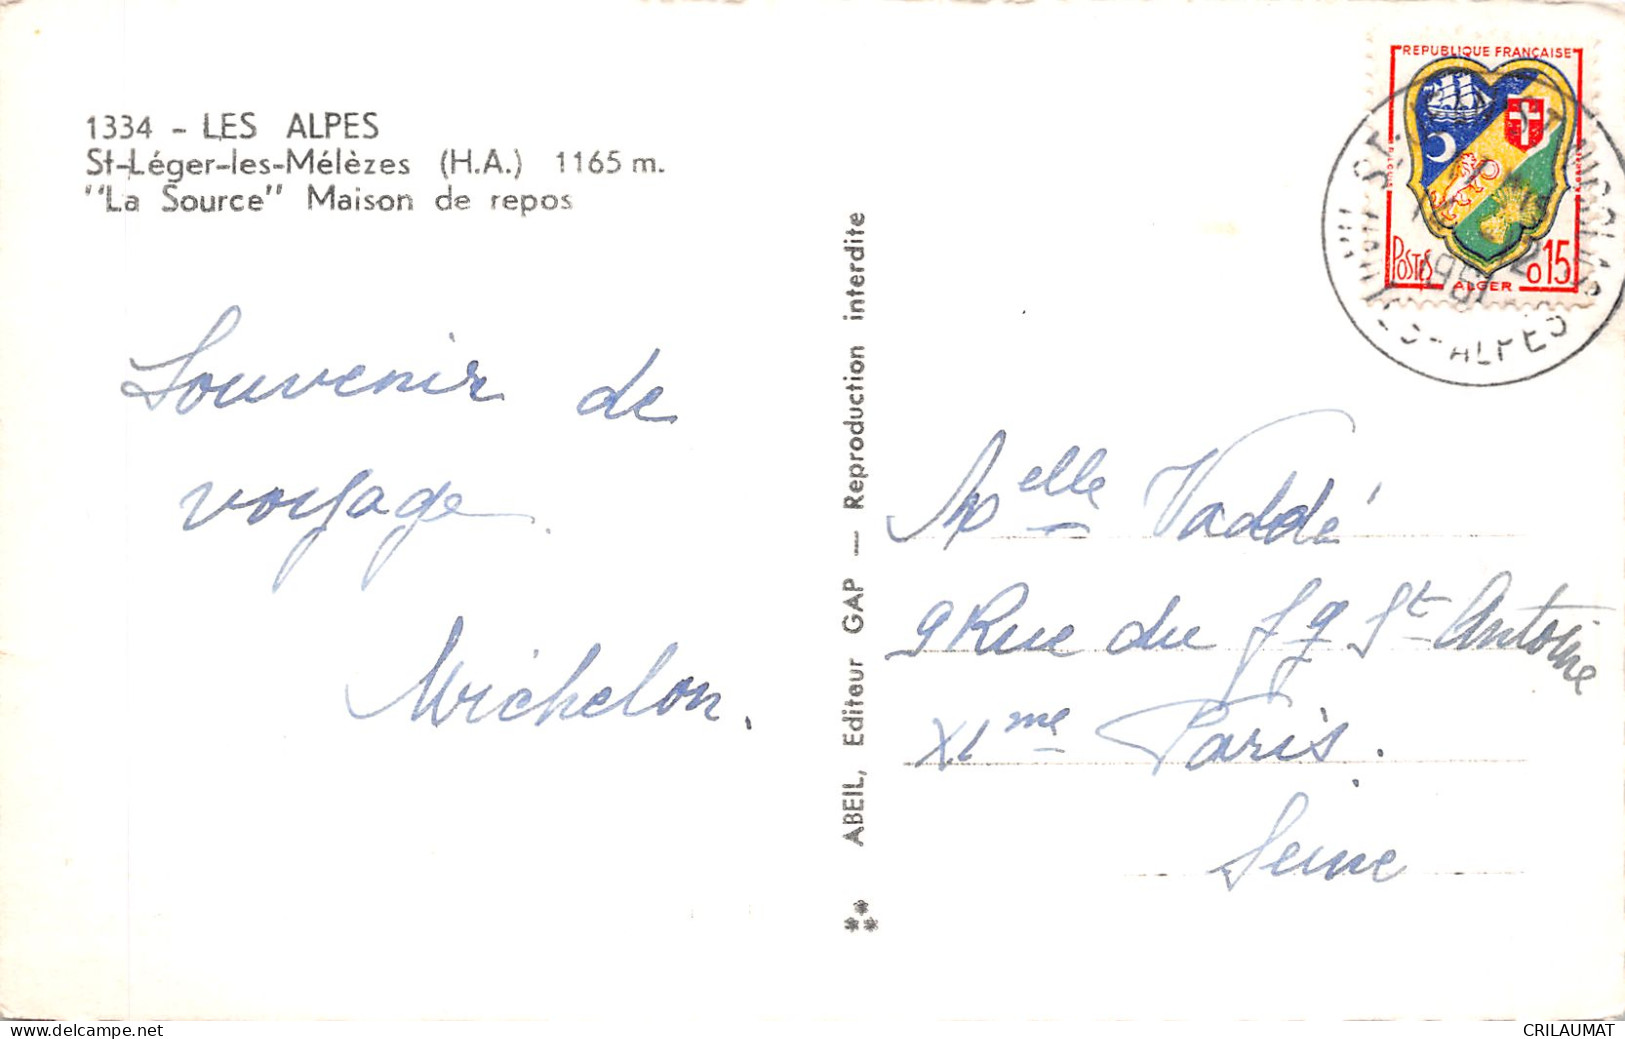 1334 - LES ALPES
St-Léger-les-Mélèzes (H.A.) 1165 m.
"La Source" Maison de repos
Souvenir de
voyage.
Michelon.
ABEIL, Editeur GAP — Reproduction interdite
REPUBLIQUE FRANÇAISE
POSTES
0,15
ALGER
1961
ALPES
Melle Vaddé
9 Rue du fg St Antoine
XIme Paris.
Seine
www.delcampe.net
CRILAUMAT